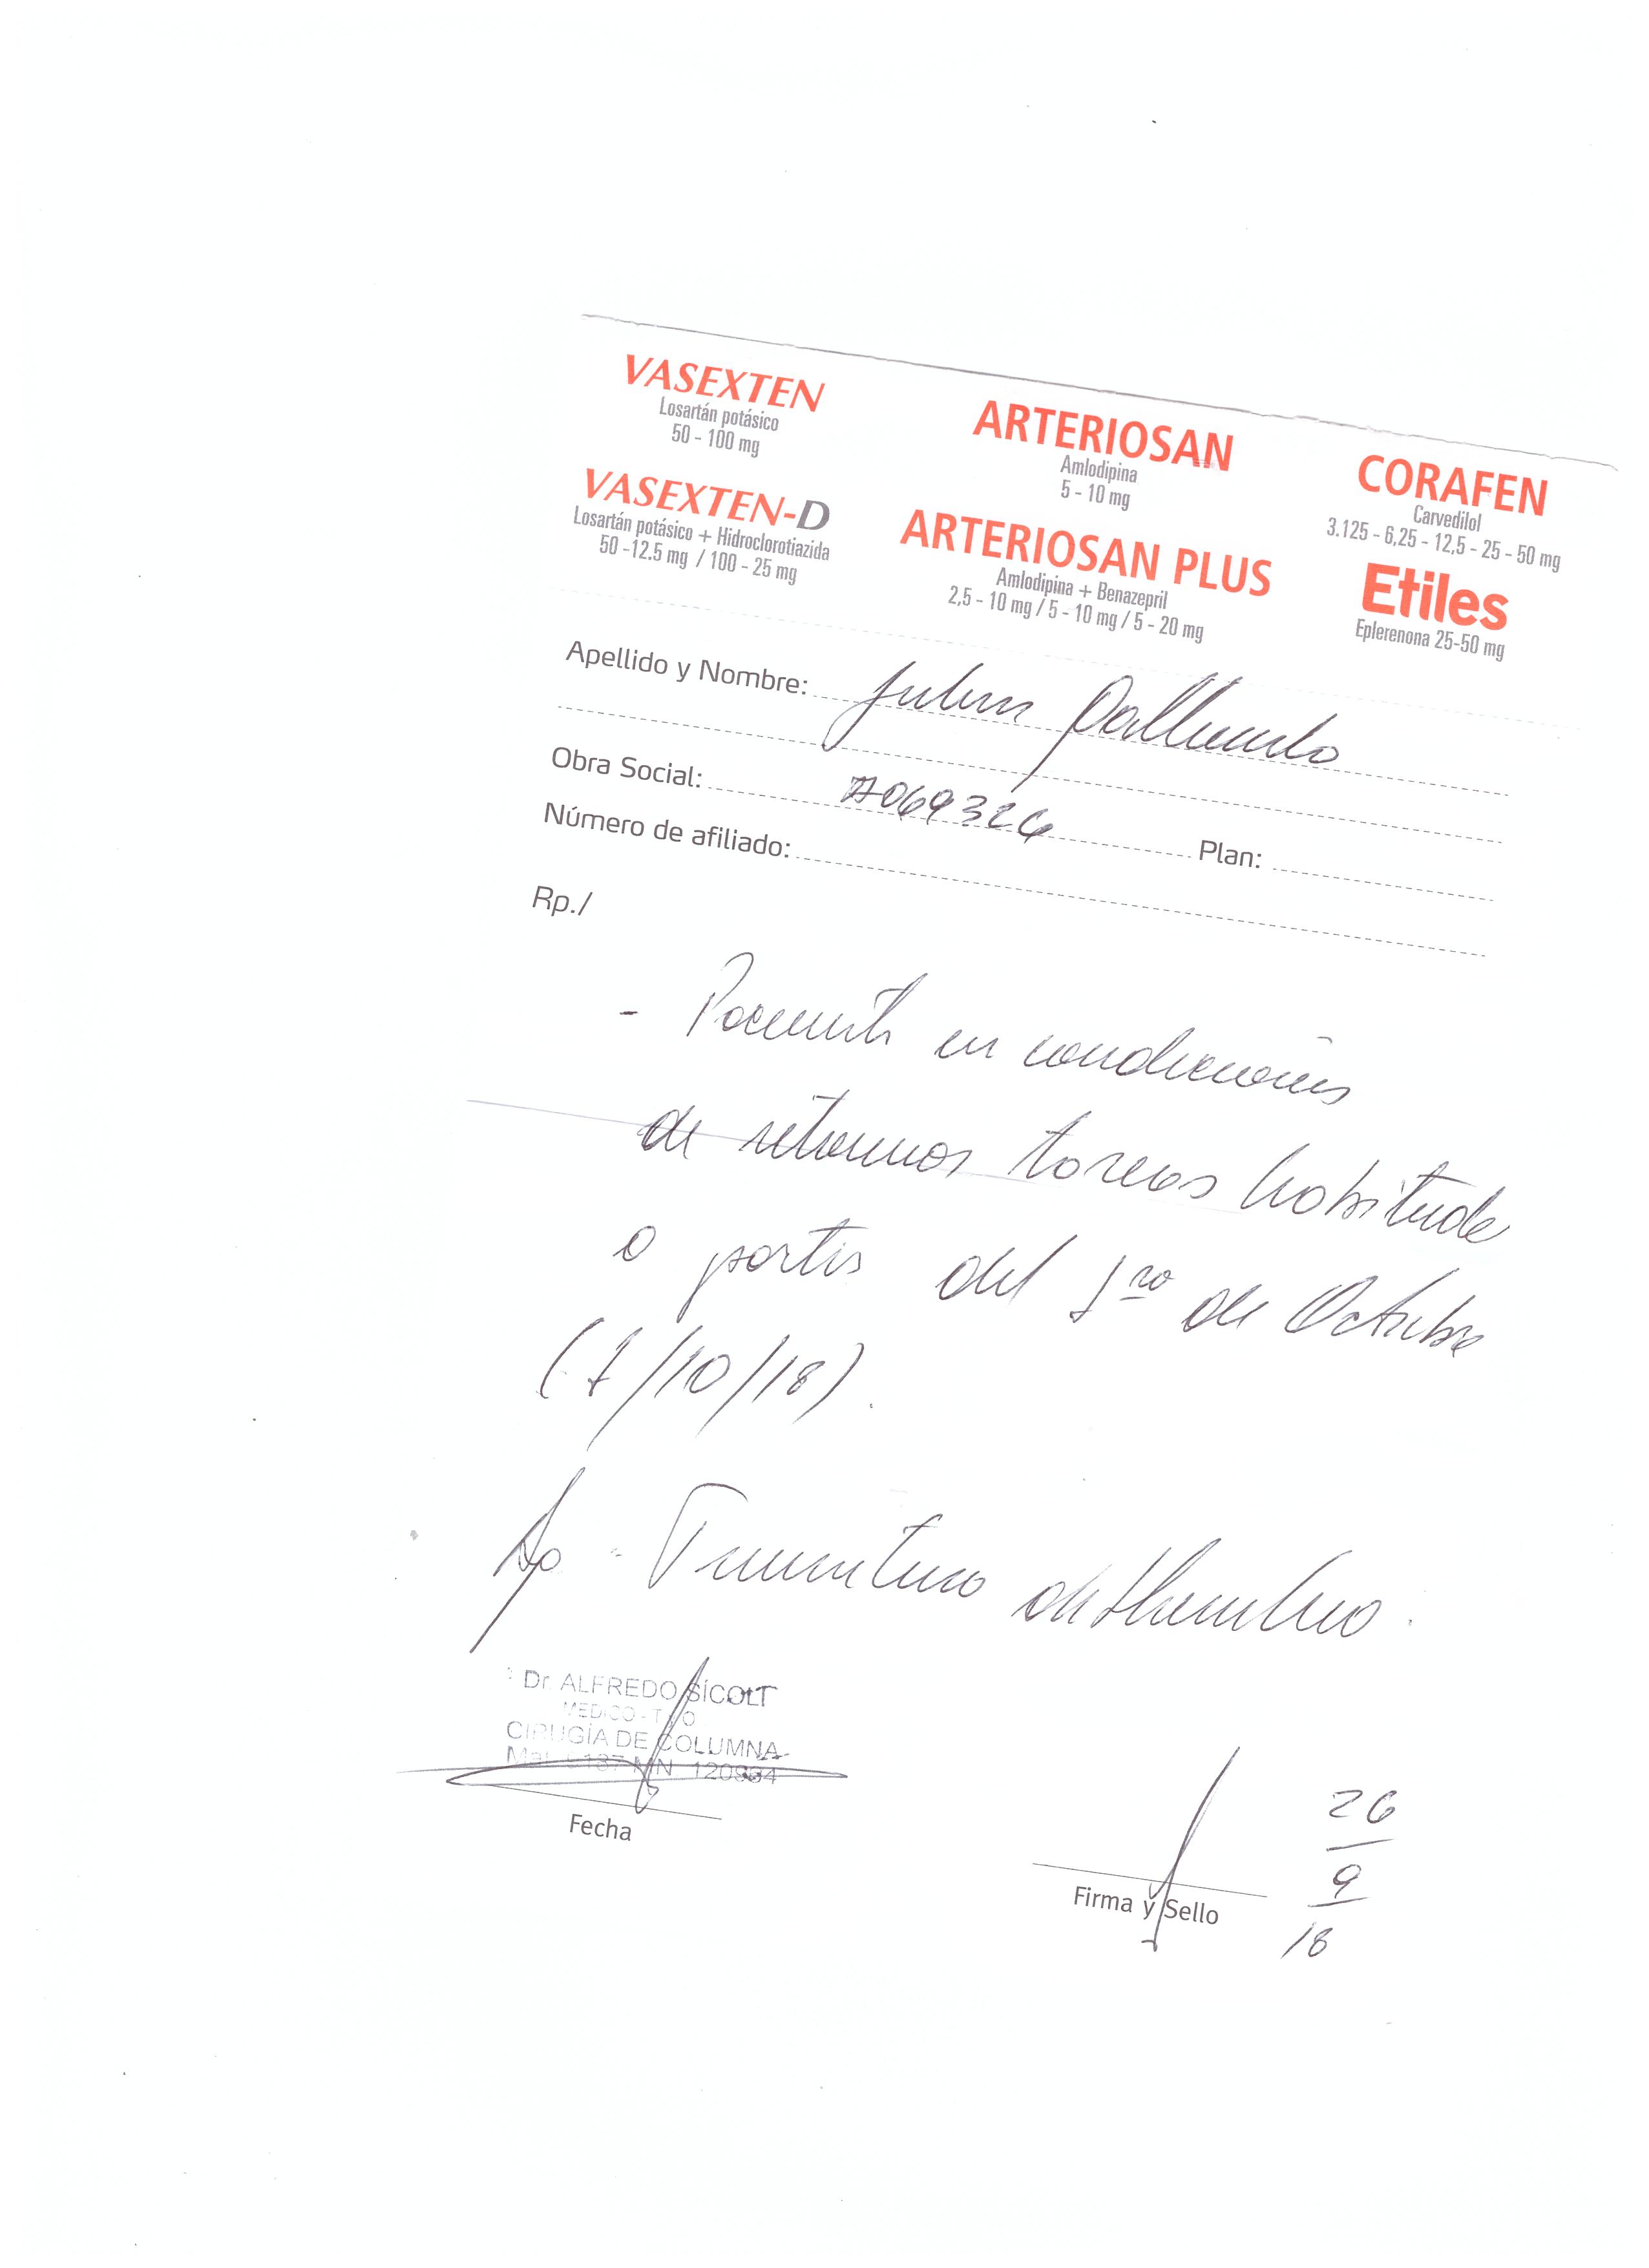 VASEXTEN
Losartán potásico
50 - 100 mg
VASEXTEN-D
Losartán potásico + Hidroclorotiazida
50 -12.5 mg / 100 - 25 mg
ARTERIOSAN
Amlodipina
5 - 10 mg
ARTERIOSAN PLUS
Amlodipina + Benazepril
2,5 - 10 mg / 5 - 10 mg / 5 - 20 mg
CORAFEN
Carvedilol
3.125 - 6,25 - 12,5 - 25 - 50 mg
Etiles
Eplerenona 25-50 mg
Apellido y Nombre:
Obra Social: Plan:
Número de afiliado:
Rp./
- Paciente en condiciones
de retomar tareas habituales
a partir del 1ro de Octubre
(1/10/18).
Dr. ALFREDO SICOLI
MEDICO - T O
CIRUGÍA DE COLUMNA
Fecha
Firma y Sello
26
9
18